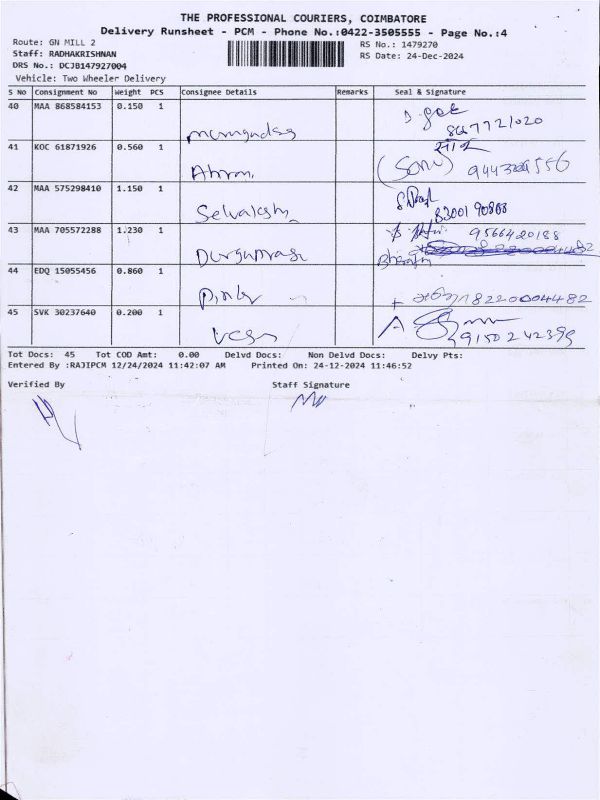 THE PROFESSIONAL COURIERS, COIMBATORE
Delivery Runsheet - PCM - Phone No.:0422-3505555 - Page No.:4
Route: GN MILL 2
RS No.: 1479270
Staff: RADHAKRISHNAN
RS Date: 24-Dec-2024
DRS No.: DCJB147927004
Vehicle: Two Wheeler Delivery
S No Consignment No Weight PCS Consignee Details Remarks Seal & Signature
40 MAA 868584153 0.150 1
8667721020
41 KOC 61871926 0.560 1
(Sony)
42 MAA 575298410 1.150 1
83001 90888
43 MAA 705572288 1.230 1 9566420188
Bharathi
44 EDQ 15055456 0.860 1
182200004482
45 SVK 30237640 0.200 1
9150242399
Tot Docs: 45 Tot COD Amt: 0.00 Delvd Docs: Non Delvd Docs: Delvy Pts:
Entered By :RAJIPCM 12/24/2024 11:42:07 AM Printed On: 24-12-2024 11:46:52
Verified By Staff Signature